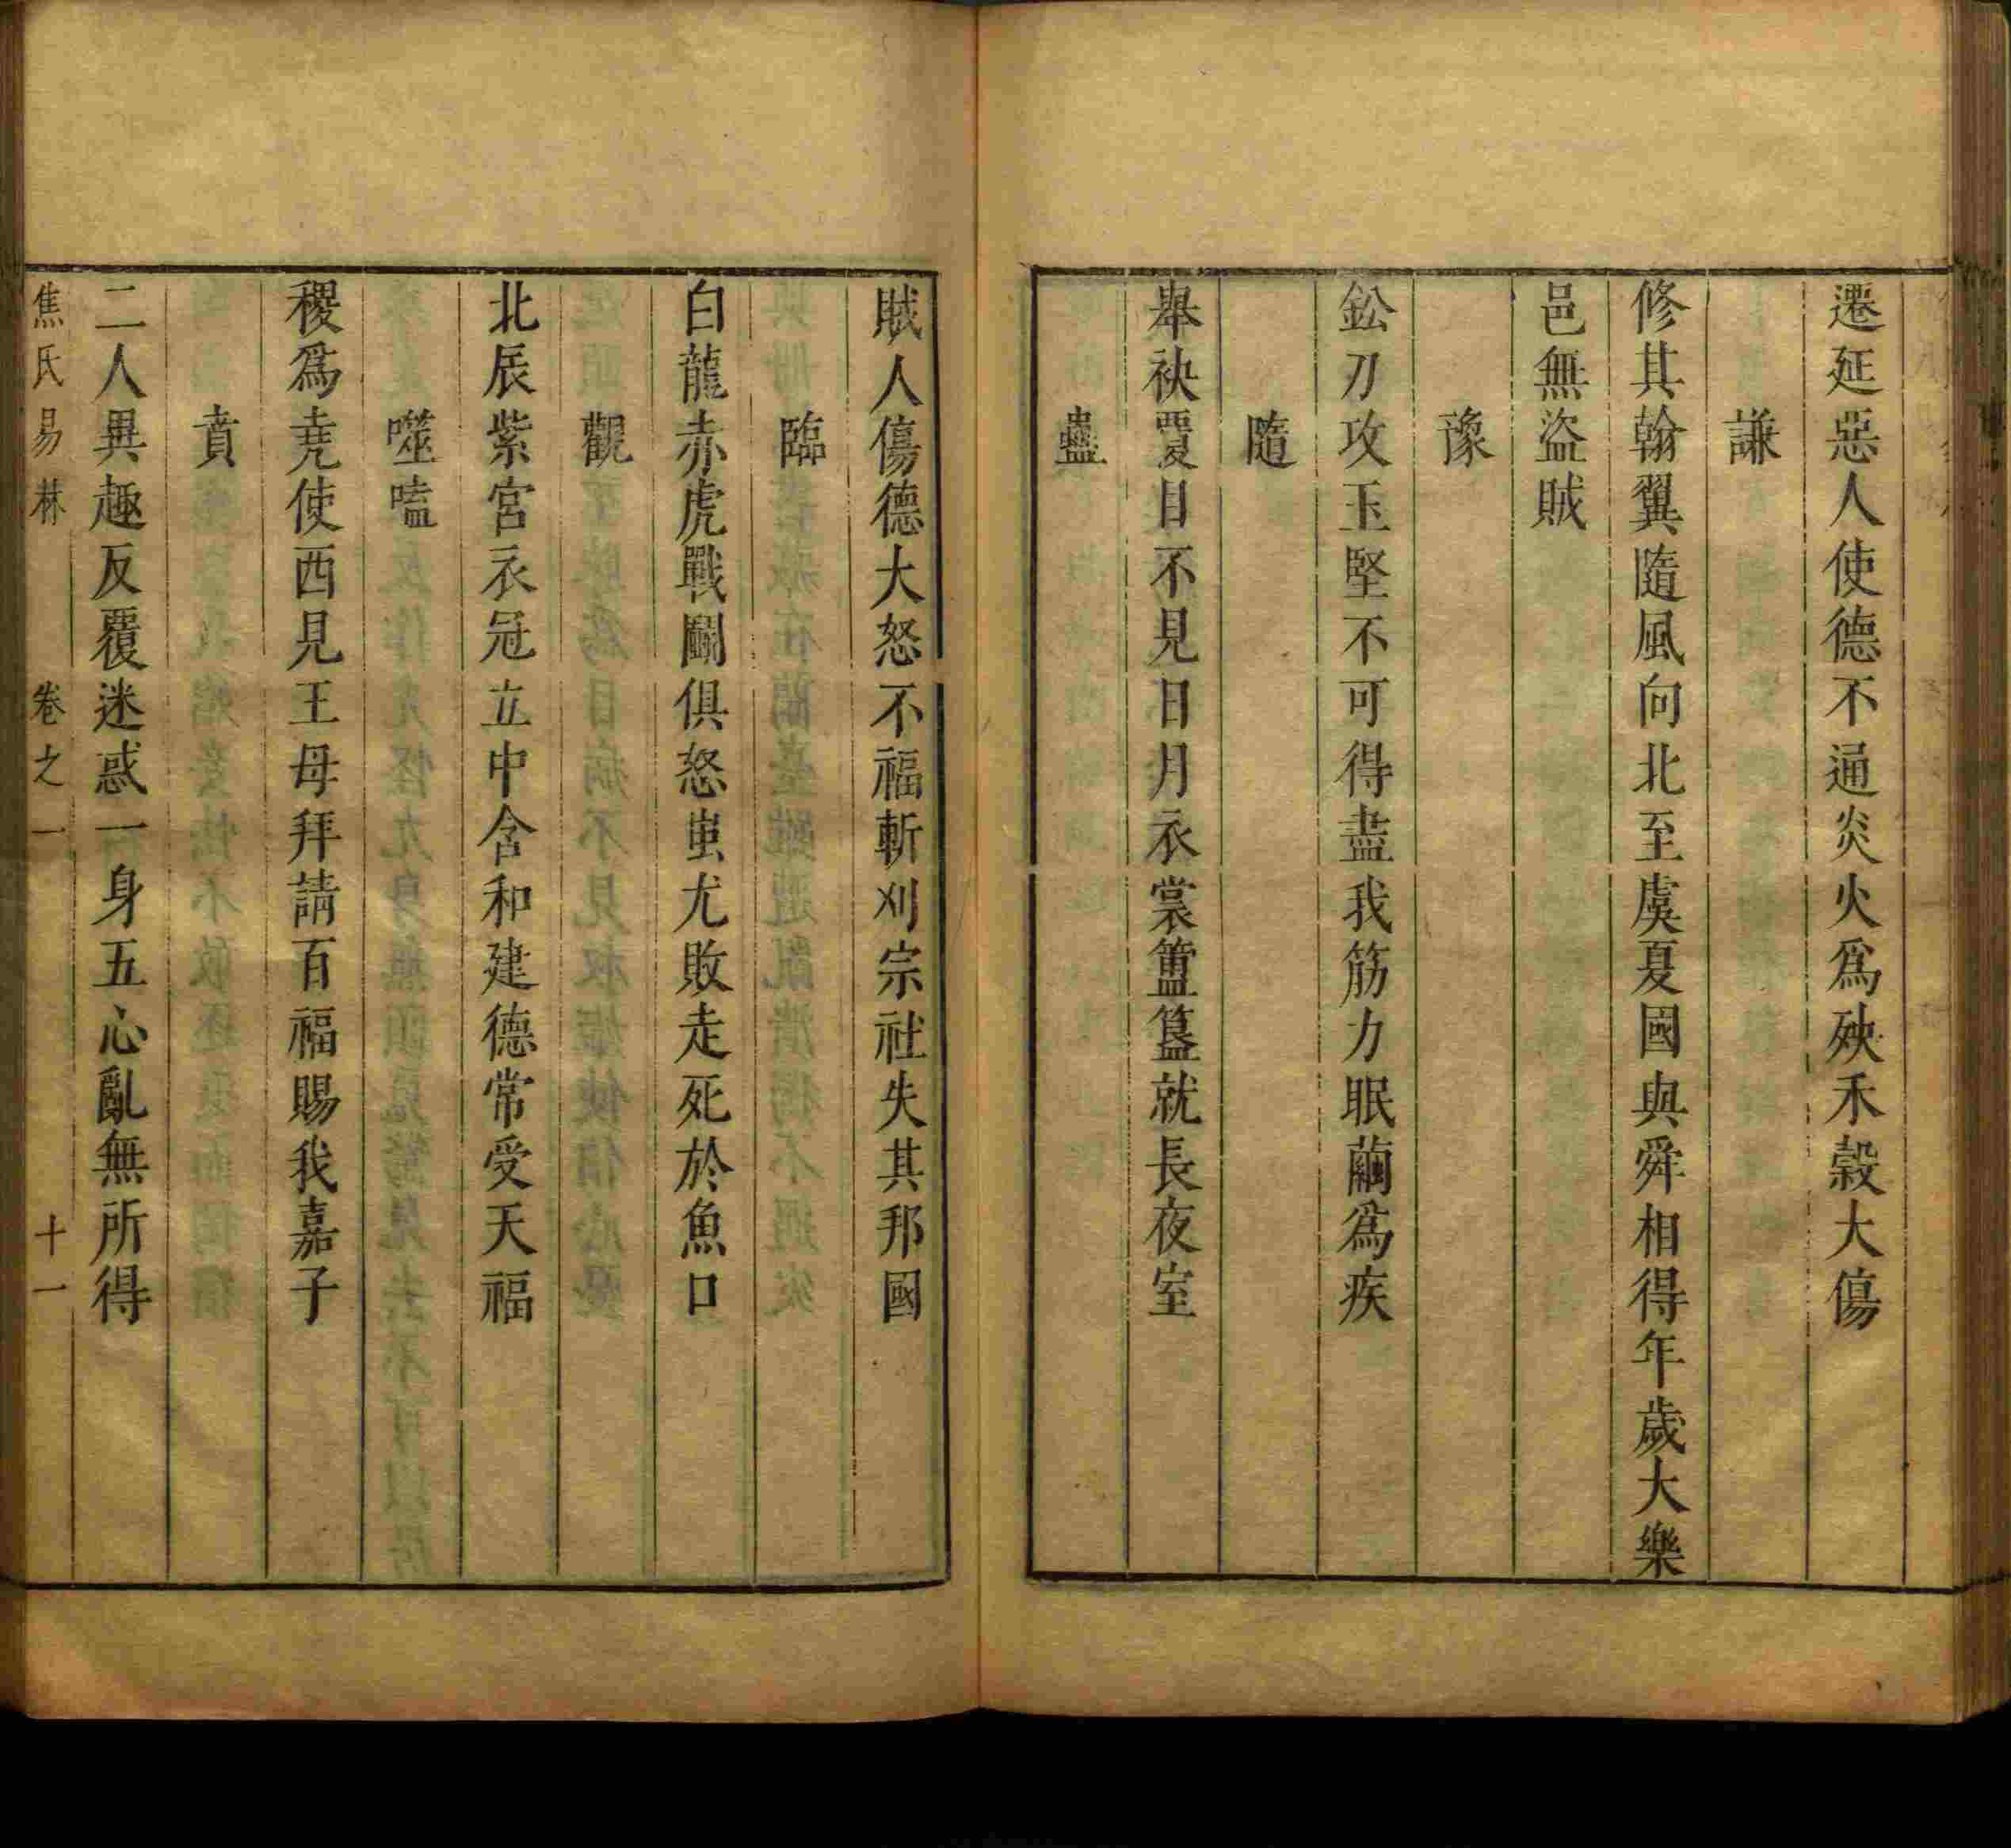 遷延惡人使德不通炎火爲殃禾穀大傷
謙
修其翰翼隨風向北至虞夏國與舜相得年歲大樂
邑無盜賊
豫
鈆刀攻玉堅不可得盡我筋力眠繭爲疾
隨
舉袂覆目不見日月衣裳簠簋就長夜室
蠱
賊人傷德大怒不福斬刈宗社失其邦國
臨
白龍赤虎戰鬭俱怒蚩尤敗走死於魚口
觀
北辰紫宮衣冠立中含和建德常受天福
噬嗑
稷爲堯使西見王母拜請百福賜我嘉子
賁
二人異趣反覆迷惑一身五心亂無所得
焦氏易林 卷之一 十一